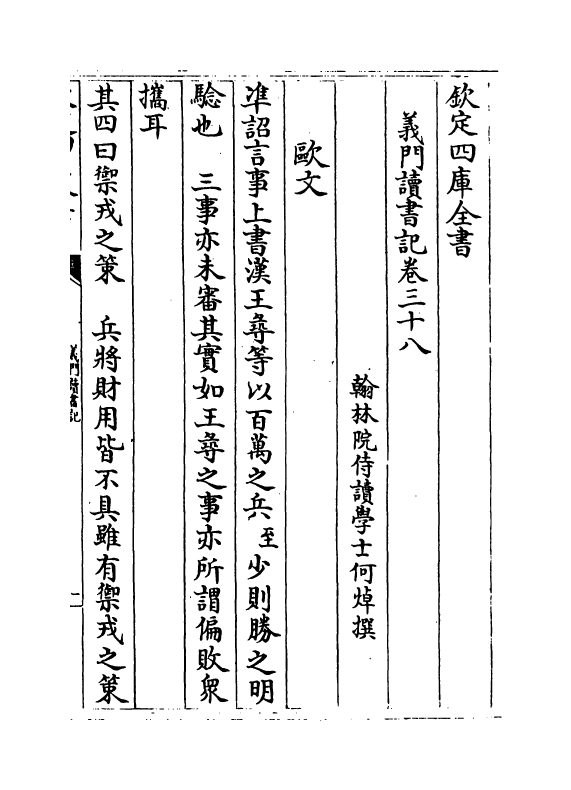 欽定四庫全書
義門讀書記卷三十八
翰林院侍讀學士何焯撰
歐文
準詔言事上書漢王尋等以百萬之兵至少則勝之明
驗也　三事亦未審其實如王尋之事亦所謂偏敗衆
攜耳
其四曰禦戎之策　兵將財用皆不具雖有禦戎之策
義門讀書記